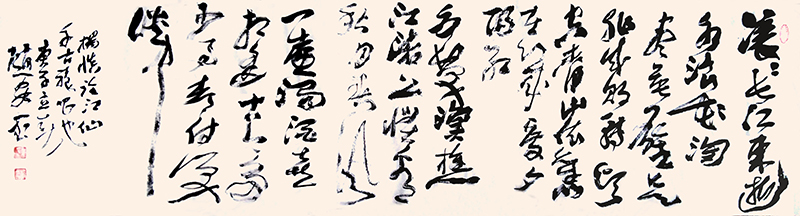 滚滚长江东逝
水浪花淘
尽英雄是
非成败转头
空青山依旧
在几度夕
阳红
白发渔樵
江渚上惯看
秋月春风
一壶浊酒喜
相逢古今多
少事都付笑
谈中
杨慎临江仙
千古绝唱也
庚子立夏